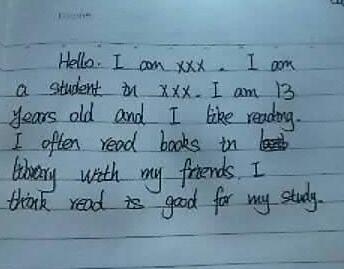 Hello. I am xxx. I am
a student in xxx. I am 13
years old and I like reading.
I often read books in
library with my friends. I
think read is good for my study.